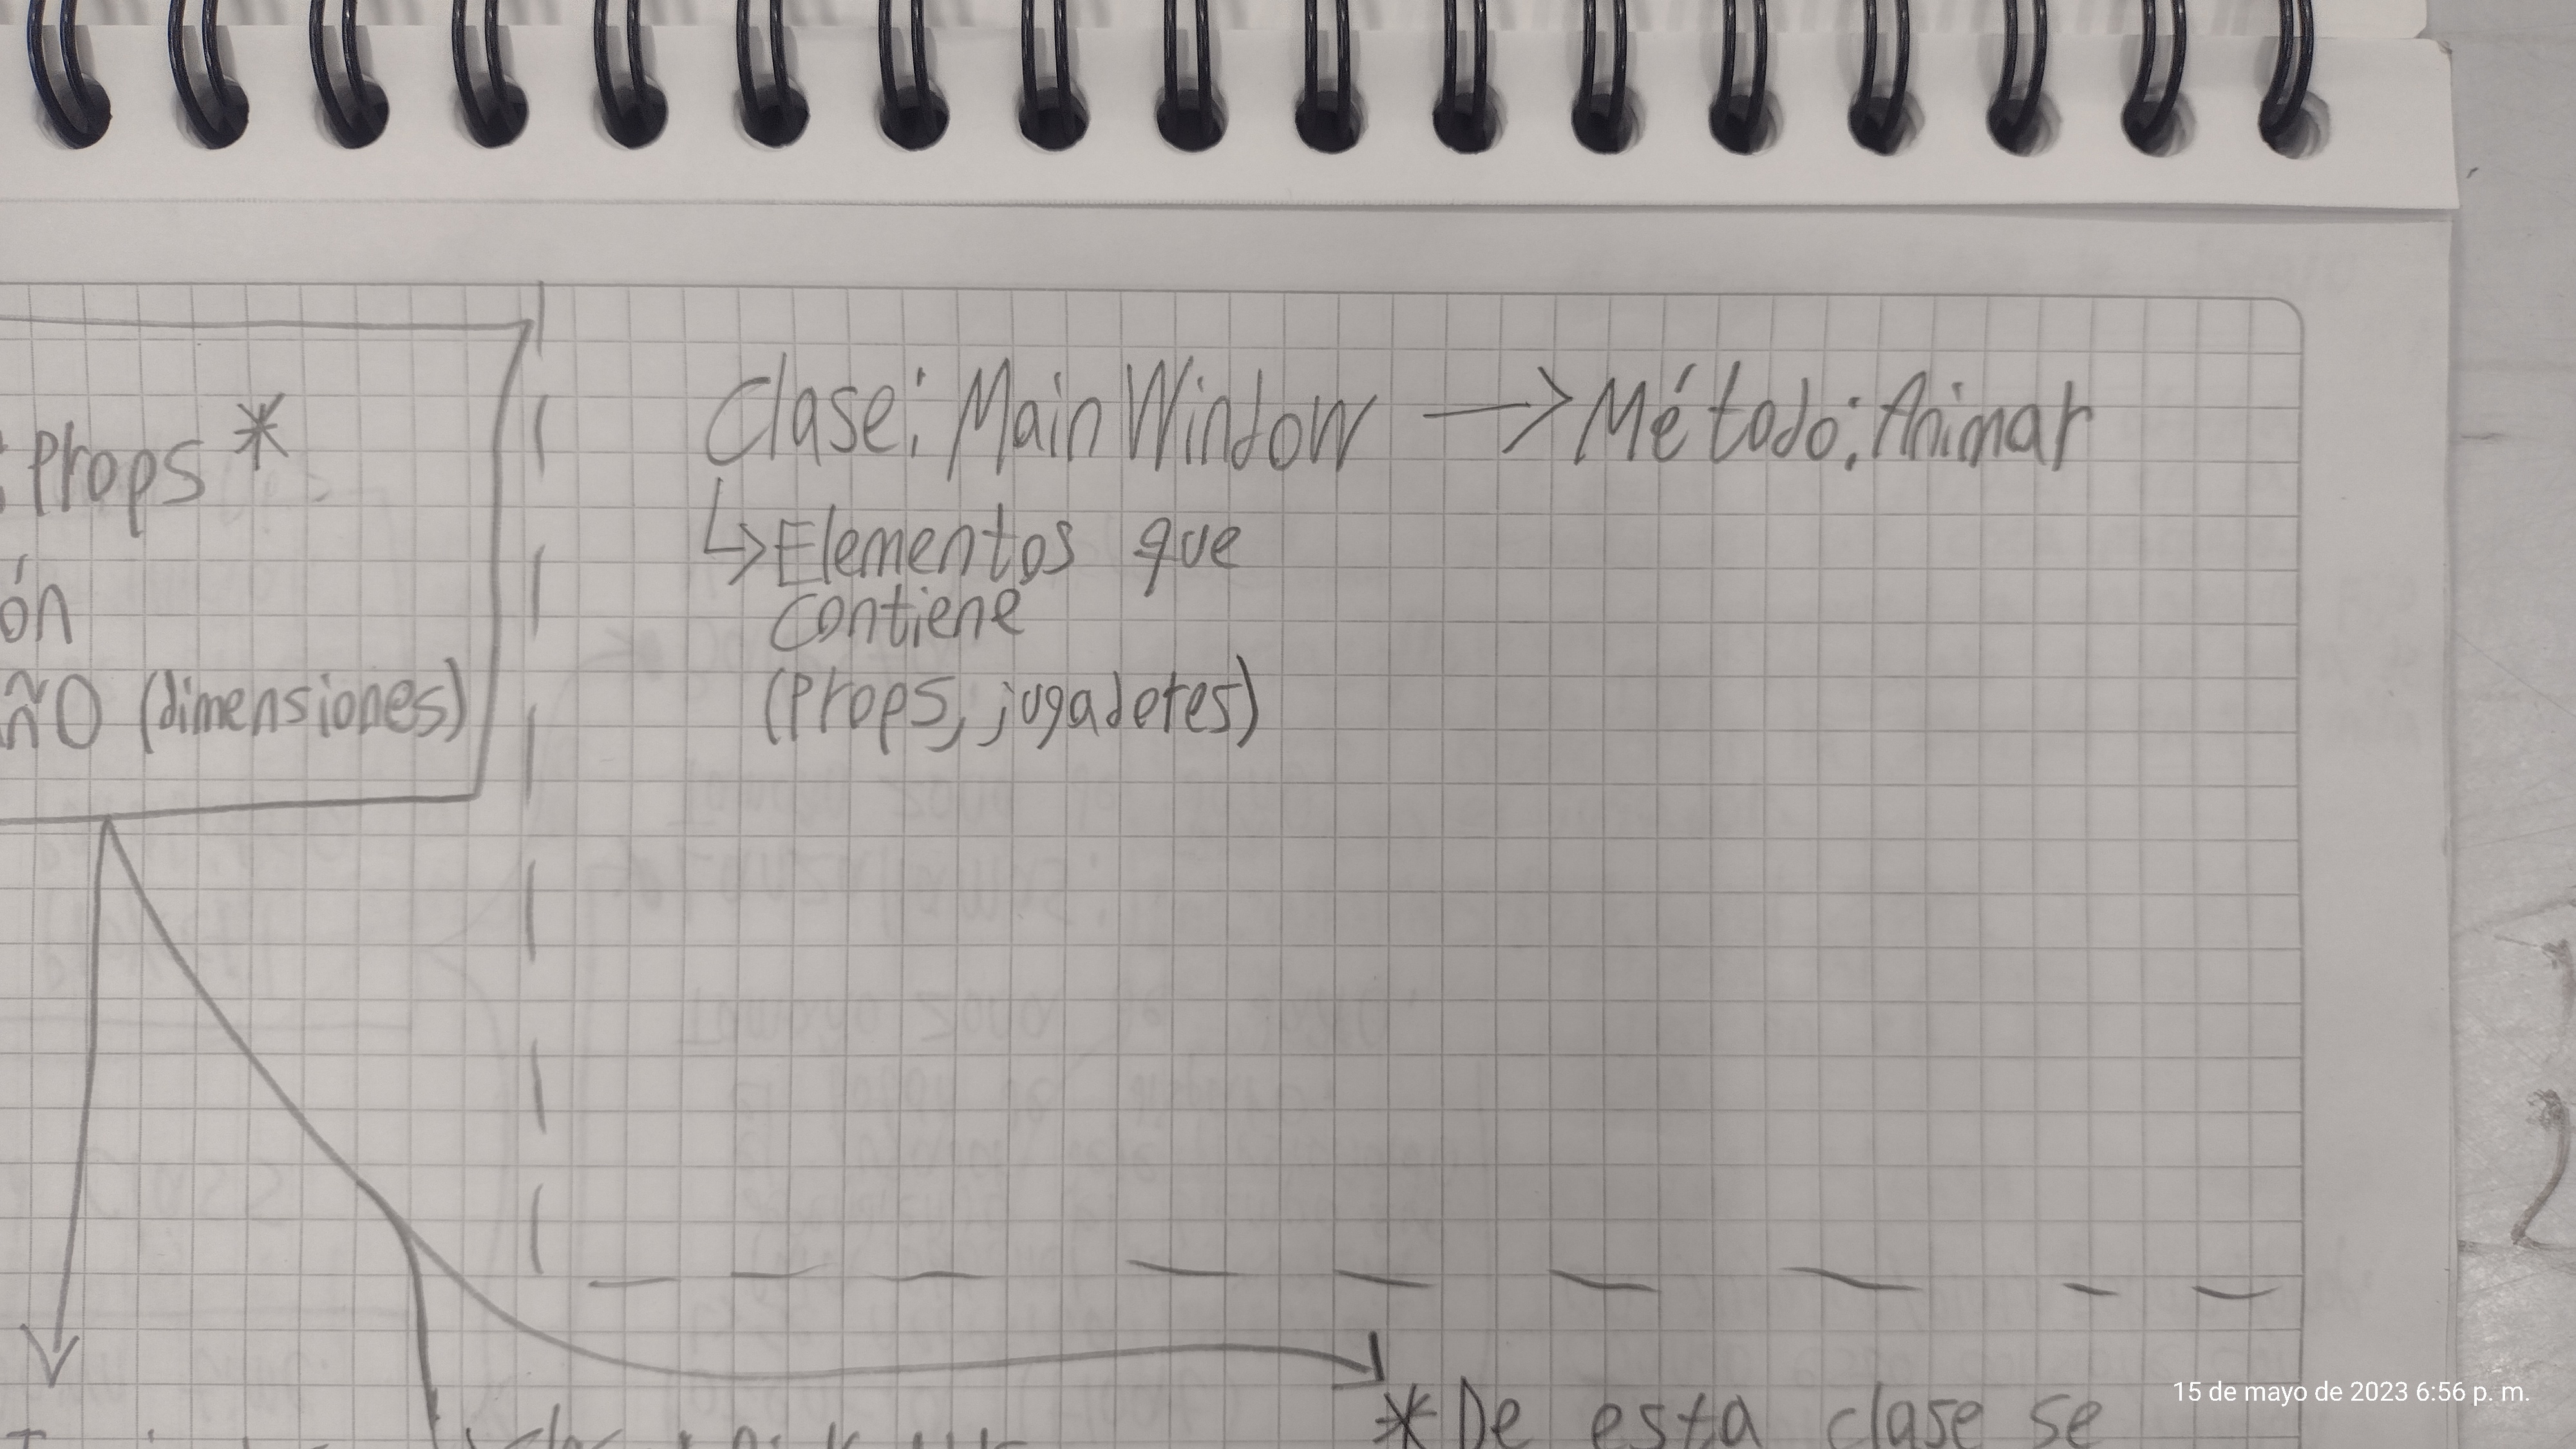 Props *
ón
ñO (dimensiones)
Clase: MainWindow → Método: Animar
↳ Elementos que
contiene
(Props, jugadetes)
* De esta clase se
15 de mayo de 2023 6:56 p. m.